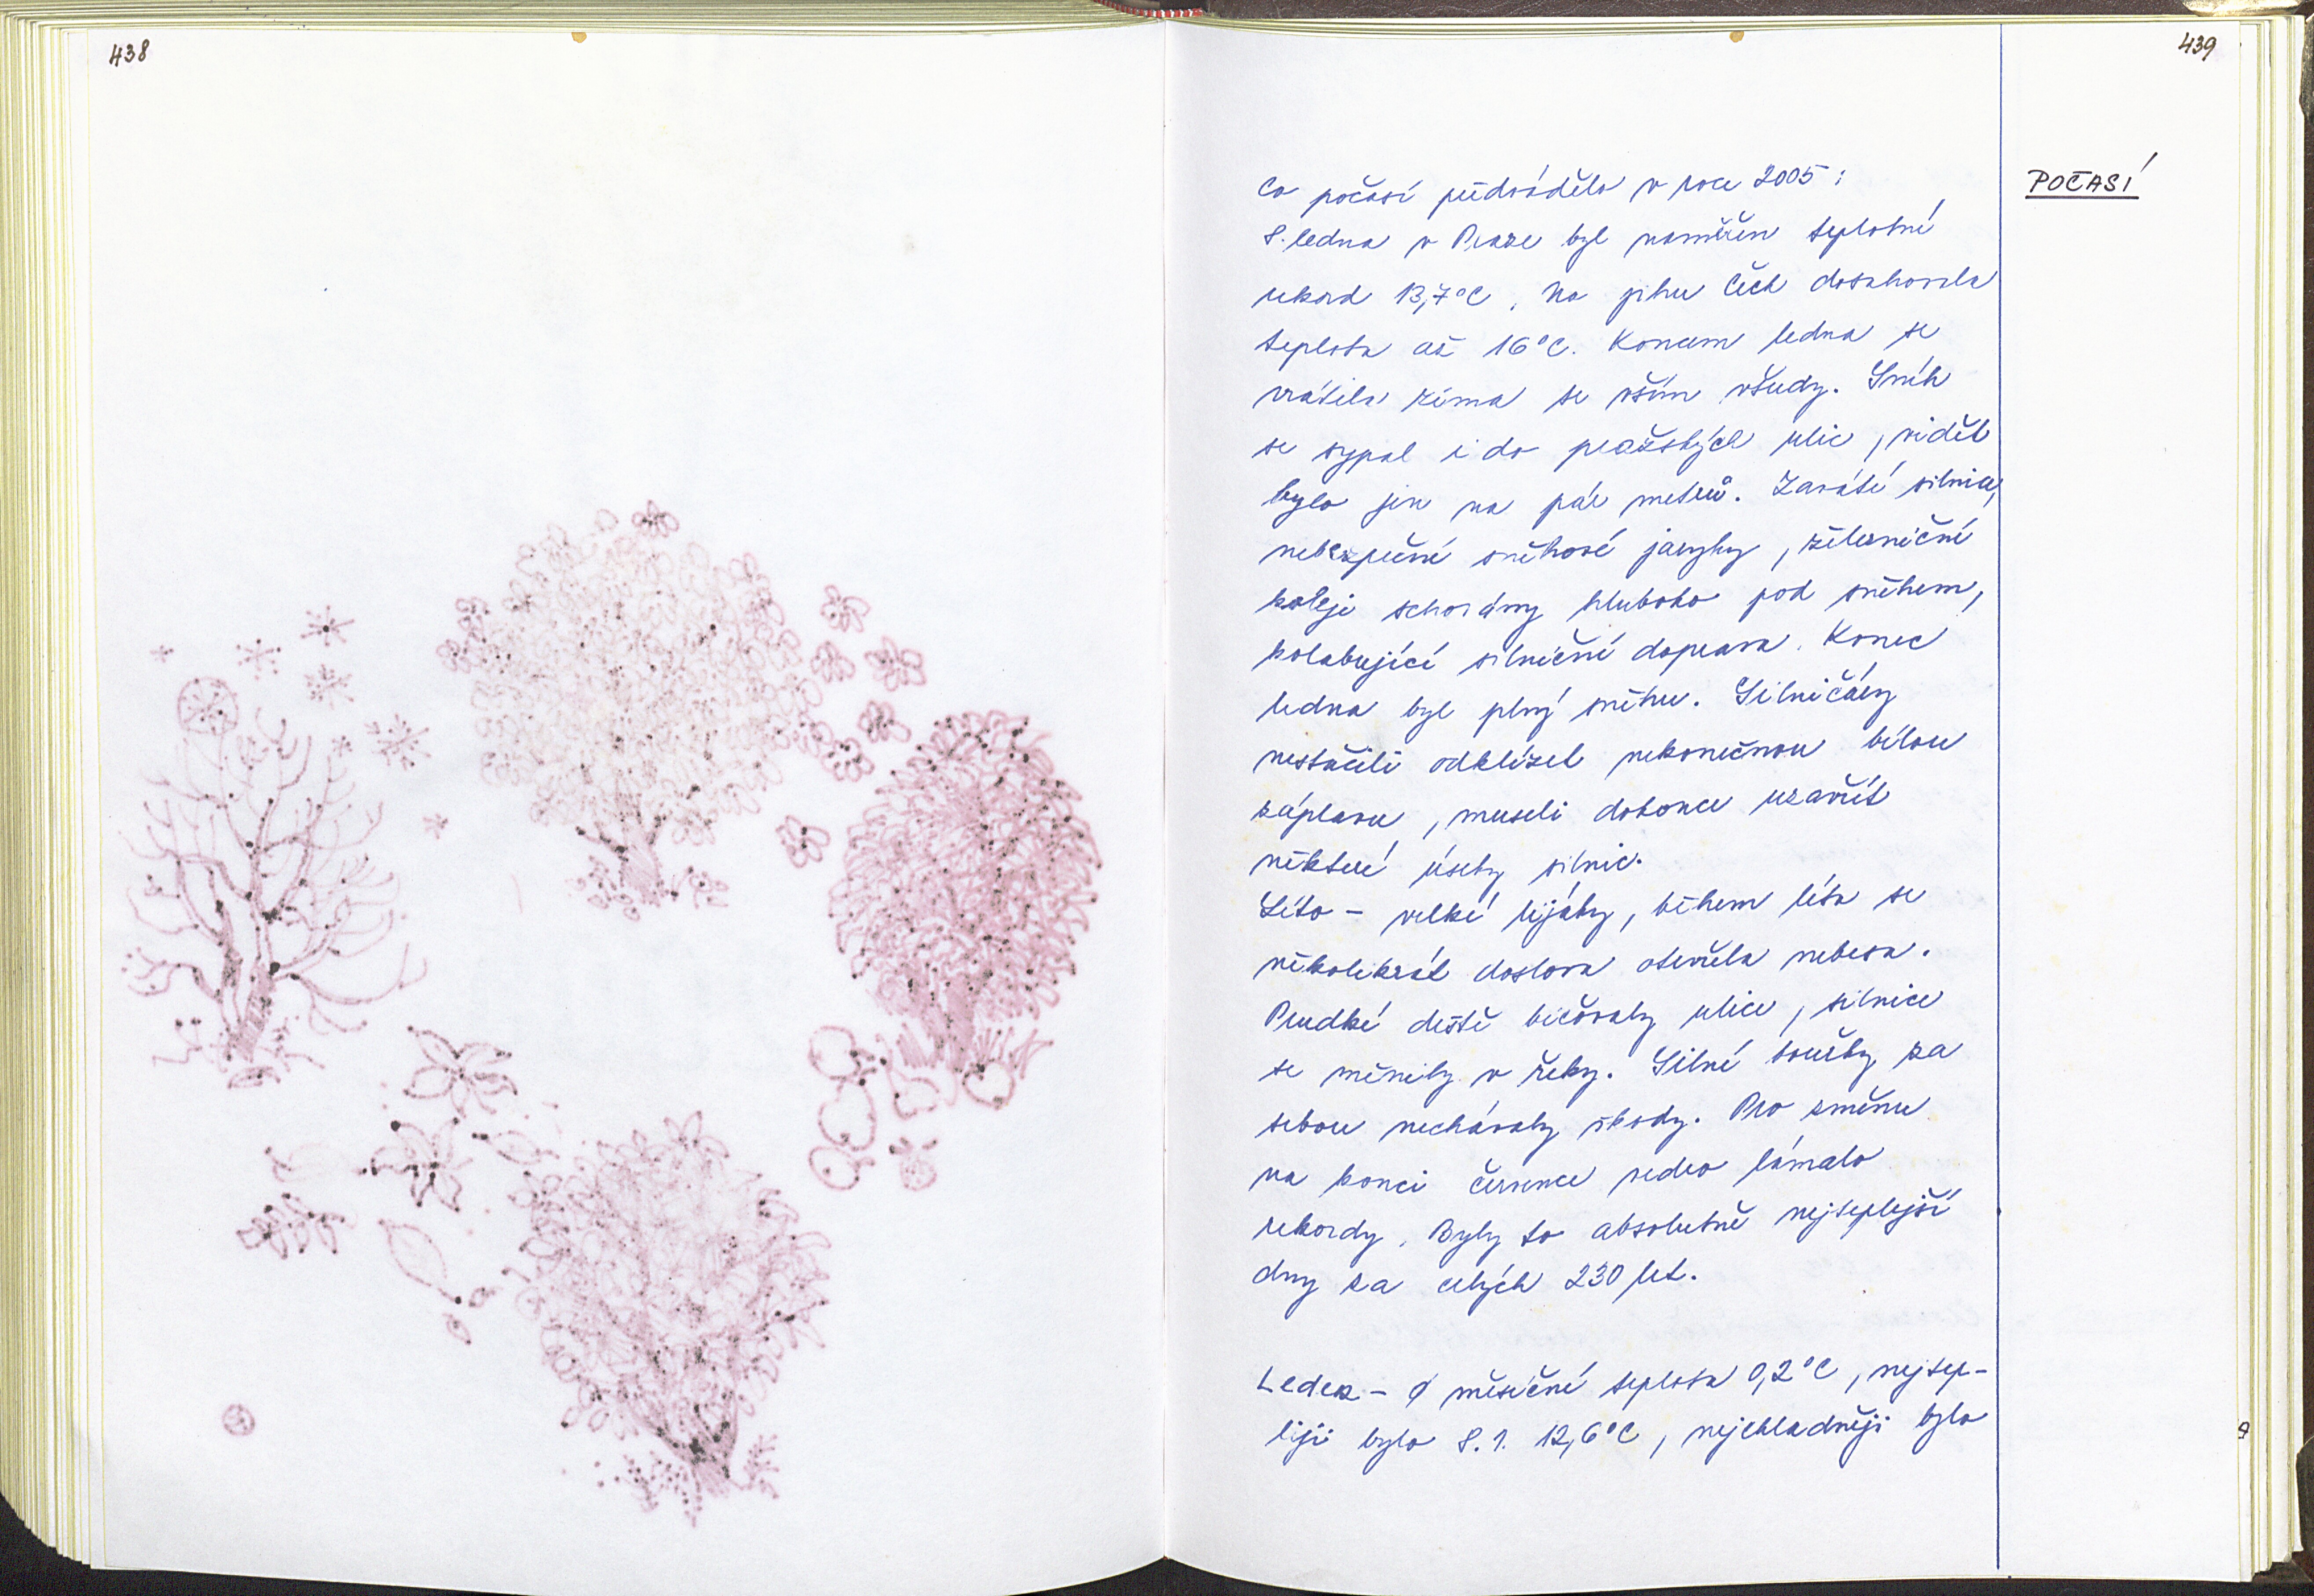 438
439
POČASÍ
Co počasí předvádělo v roce 2005:
8. ledna v Praze byl naměřen teplotní
rekord 13,7°C. Na jihu Čech dosahovala
teplota až 16°C. Koncem ledna se
vrátila zima se vším všudy. Sníh
se sypal i do pražských ulic, vidět
bylo jen na pár metrů. Zaváté silnice,
nebezpečné sněhové jazyky, železniční
koleje schovány hluboko pod sněhem,
kolabující silniční doprava. Konec
ledna byl plný sněhu. Silničáry
nestačili odklízet nekonečnou bílou
záplavu, museli dokonce uzavřít
některé úseky silnic.
Léto - velké lijáky, během léta se
několikrát doslova otevřela nebesa.
Prudké deště bičovaly ulice, silnice
se měnily v řeky. Silné bouřky za
sebou nechávaly škody. Pro změnu
na konci července vedro lámalo
rekordy. Byly to absolutně nejteplejší
dny za celých 230 let.
Leden - ø měsíční teplota 0,2°C, nejtep-
leji bylo 8.1. 12,6°C, nejchladněji bylo